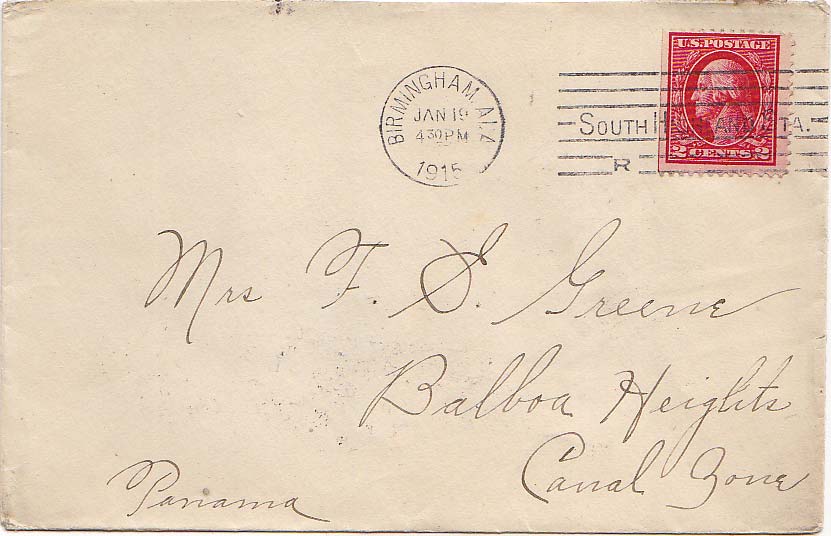 U.S. POSTAGE
2 CENTS 2
BIRMINGHAM, ALA.
JAN 19
4 30 PM
1915
SOUTH HIGHLAND STA.
R
Mrs F. S. Greene
Balboa Heights
Canal Zone
Panama